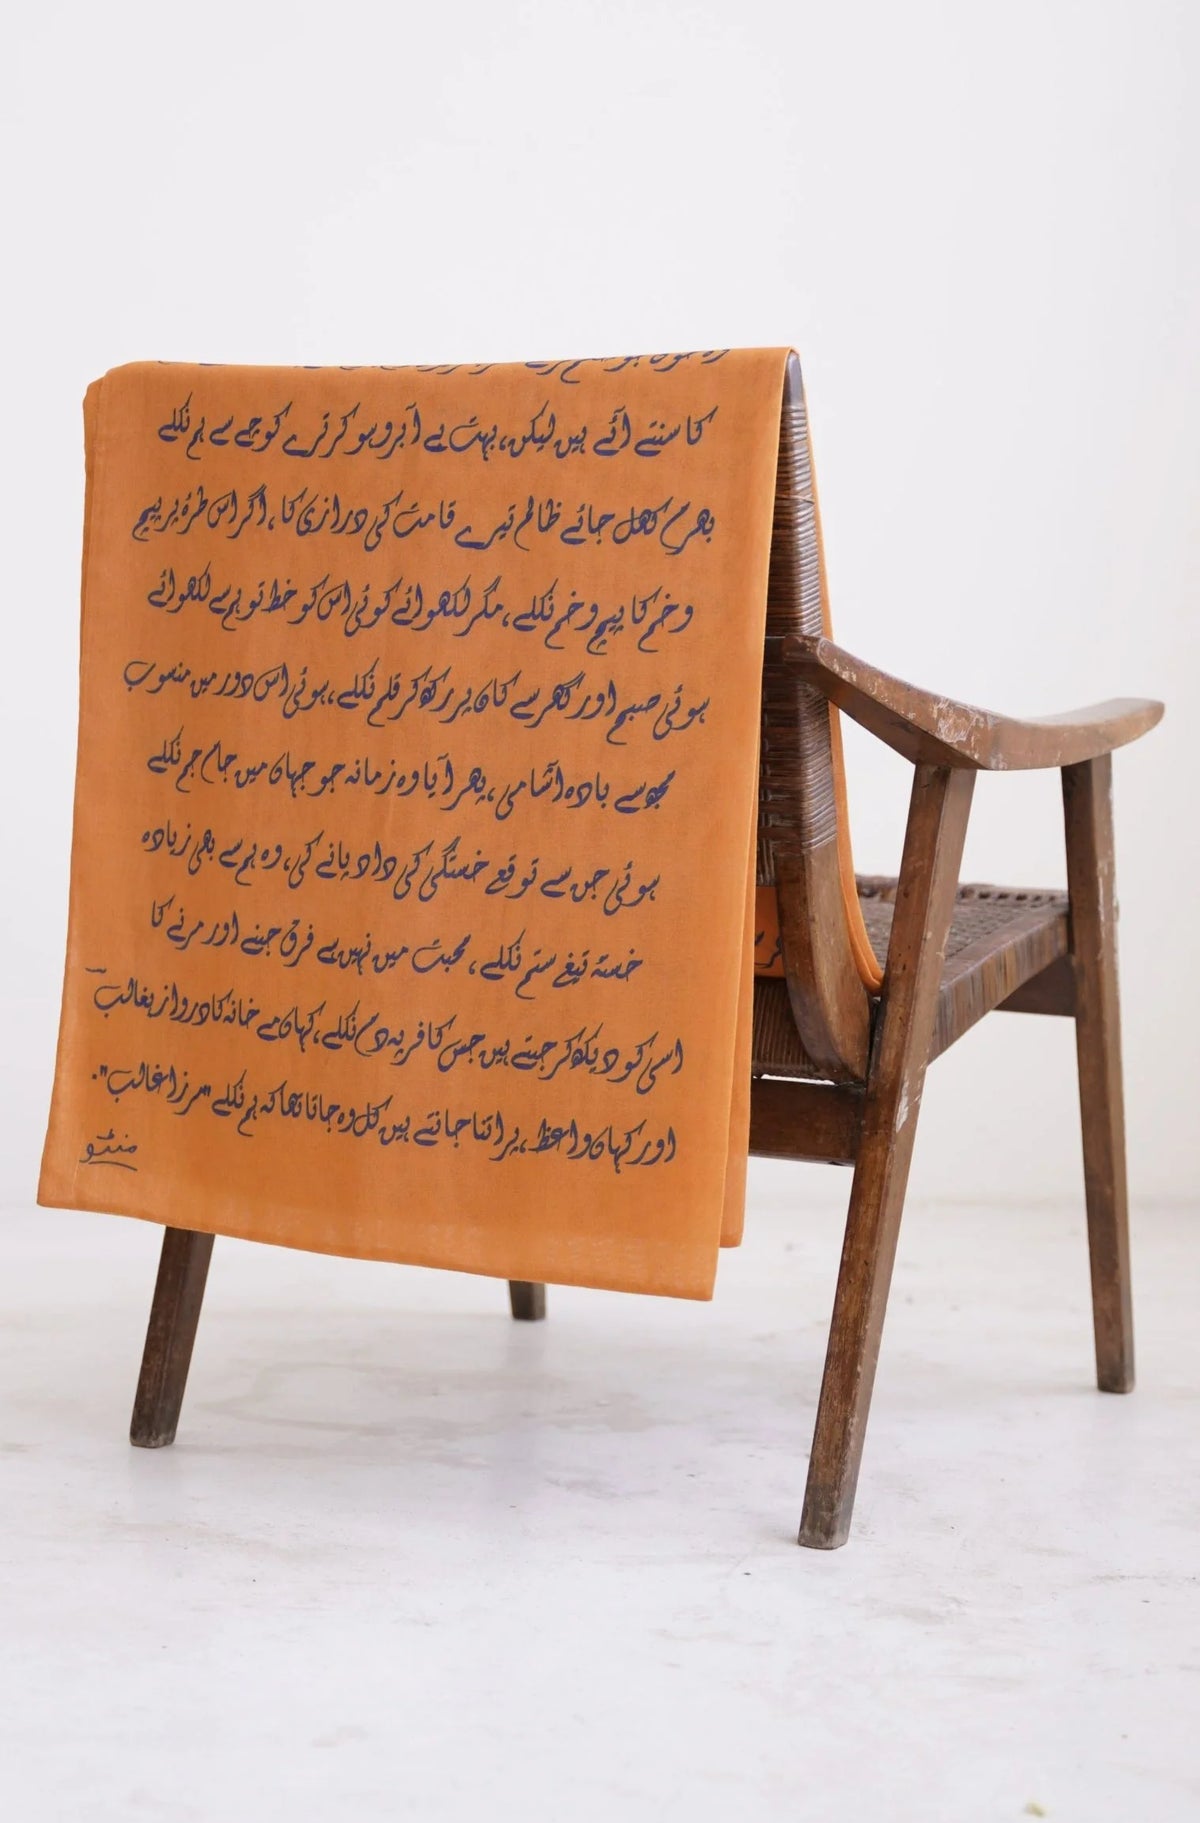 کا سنتے آئے ہیں لیکن، بہت بے آبرو ہو کر ترے کوچے سے ہم نکلے
بھرم کھل جائے ظالم تیرے قامت کی درازی کا، اگر اس طرۂ پر پیچ
و خم کا پیچ و خم نکلے، مگر لکھوائے کوئی اس کو خط تو ہم سے لکھوائے
ہوئی صبح اور گھر سے کان پر رکھ کر قلم نکلے، ہوئی اس دور میں منسوب
مجھ سے بادہ آشامی، پھر آیا وہ زمانہ جو جہاں میں جام جم نکلے
ہوئی جن سے توقع خستگی کی داد پانے کی، وہ ہم سے بھی زیادہ
خستۂ تیغ ستم نکلے، محبت میں نہیں ہے فرق جینے اور مرنے کا
اسی کو دیکھ کر جیتے ہیں جس کافر پہ دم نکلے، کہاں مے خانہ کا دروازہ غالب
اور کہاں واعظ، پر اتنا جانتے ہیں کل وہ جاتا تھا کہ ہم نکلے "مرزا غالب".
منٹو